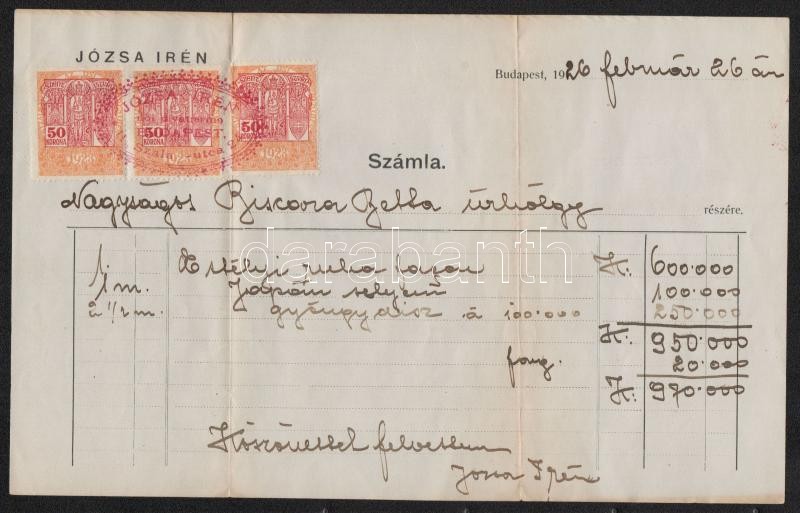 JÓZSA IRÉN
Budapest, 1926 február 26 án
50 KORONA 50 KORONA 50 KORONA
JÓZSA IRÉN
BUDAPEST,
1923 1923 1923
Számla.
Nagyságos Biscara Betta úrhölgy részére.
1. Estélyi ruha fazon K: 600.000
1 m. Japán selyem 100.000
2 1/2 m. gyöngydísz á 100.000 250.000
K: 950.000
forg. 20.000
K: 970.000
Köszönettel felvettem
Józsa Irén
darabanth